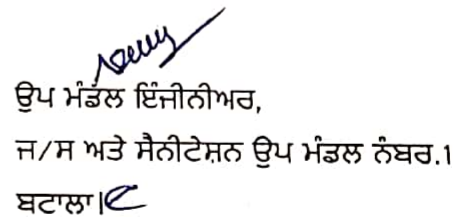 ਉਪ ਮੰਡਲ ਇੰਜੀਨੀਅਰ,
ਜ/ਸ ਅਤੇ ਸੈਨੀਟੇਸ਼ਨ ਉਪ ਮੰਡਲ ਨੰਬਰ.1
ਬਟਾਲਾ|